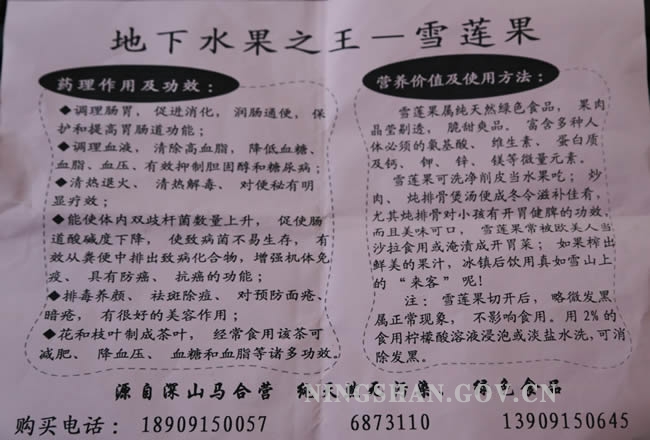 地下水果之王—雪莲果
药理作用及功效：
◆调理肠胃， 促进消化， 润肠通便， 保
护和提高胃肠道功能；
◆调理血液， 清除高血脂， 降低血糖、
血脂、血压、有效抑制胆固醇和糖尿病；
◆清热退火、 清热解毒、 对便秘有明
显疗效；
◆能使体内双歧杆菌数量上升， 促使肠
道酸碱度下降， 使致病菌不易生存， 有
效从粪便中排出致病化合物，增强机体免
疫、 具有防癌、 抗癌的功能；
◆排毒养颜、 祛斑除痘、 对预防面疮、
暗疮， 有很好的美容作用；
◆花和枝叶制成茶叶， 经常食用该茶可
减肥、 降血压、 血糖和血脂等诸多功效。
营养价值及使用方法：
雪莲果属纯天然绿色食品， 果肉
晶莹剔透， 脆甜爽品。 富含多种人
体必须的氨基酸、 维生素， 蛋白质
及钙、 钾、 锌、 镁等微量元素。
雪莲果可洗净削皮当水果吃； 炒
肉、 炖排骨煲汤便成冬令滋补佳肴，
尤其炖排骨对小孩有开胃健脾的功效，
而且美味可口， 雪莲果常被欧美人当
沙拉食用或淹渍成开胃菜； 如果榨出
鲜美的果汁，冰镇后饮用真如雪山上
的“来客” 呢!
注： 雪莲果切开后， 略微发黑
属正常现象， 不影响食用。用2%的
食用柠檬酸溶液浸泡或淡盐水洗,可消
除发黑。
源自深山马合营 绿色食品
NINGSHAN.GOV.CN
购买电话： 18909150057 6873110 13909150645